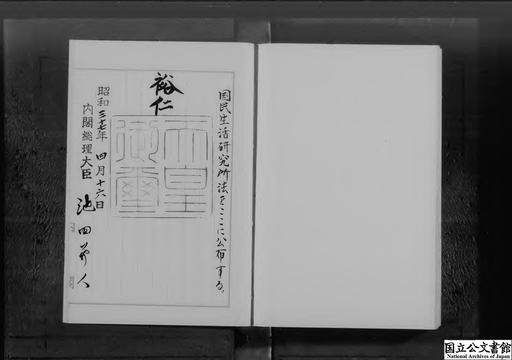 国民生活研究所法をここに公布する。
裕仁
天皇御璽
昭和三十七年四月十六日
内閣総理大臣 池田勇人
国立公文書館
National Archives of Japan